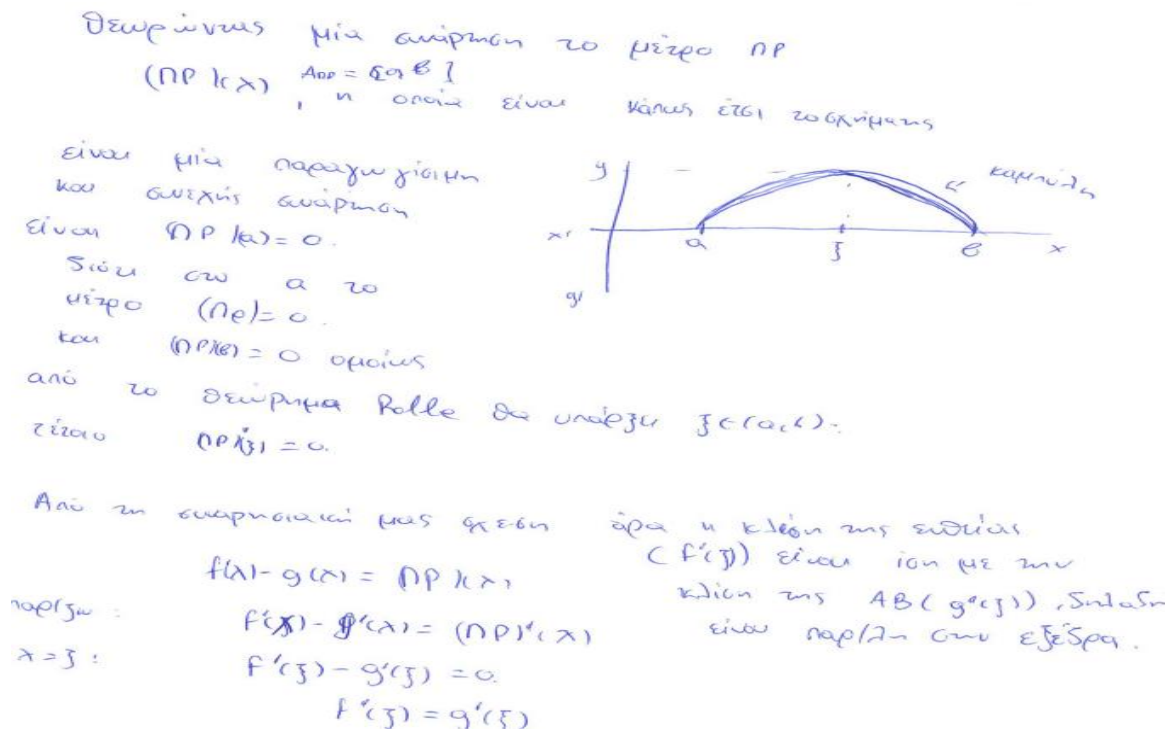 Θεωρώντας μία συνάρτηση το μέτρο ΠΡ
(ΠΡ)(x) , Α = [α, β]
η οποία είναι κάπως έτσι το σχήμα της
είναι μία παραγωγίσιμη
και συνεχής συνάρτηση
είναι (ΠΡ)(α) = 0.
διότι στο α το
μέτρο (Πρ) = 0.
και (ΠΡ)(β) = 0 ομοίως
y
καμπύλη
x'
α
ξ
β
x
y'
από το θεώρημα Rolle θα υπάρξει ξ∈(α,β).
τέτοιο ΠΡ'(ξ) = 0.
Από τη συναρτησιακή μας σχέση
f(x) - g(x) = (ΠΡ)(x)
παρ/ζω : f'(x) - g'(x) = (ΠΡ)'(x)
x = ξ : f'(ξ) - g'(ξ) = 0.
f'(ξ) = g'(ξ)
άρα η κλίση της ευθείας
(f'(ξ)) είναι ίση με την
κλίση της ΑΒ (g'(ξ)), δηλαδή
είναι παρ/λη στην εξέδρα.